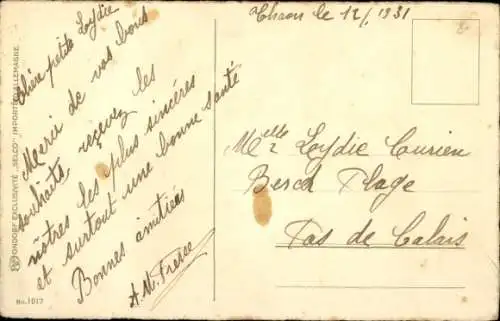 Thaon le 12/1 1931
Chère petite Lydie
Merci de vos bons
souhaits, reçevez les
nôtres les plus sincères
et surtout une bonne santé
Bonnes amitiés
A. M. Fresse
Melle Lydie Courien
Berck Plage
Pas de Calais
EXCLUSIVITÉ „SELCO" IMPORTÉ D'ALLEMAGNE
No. 1017